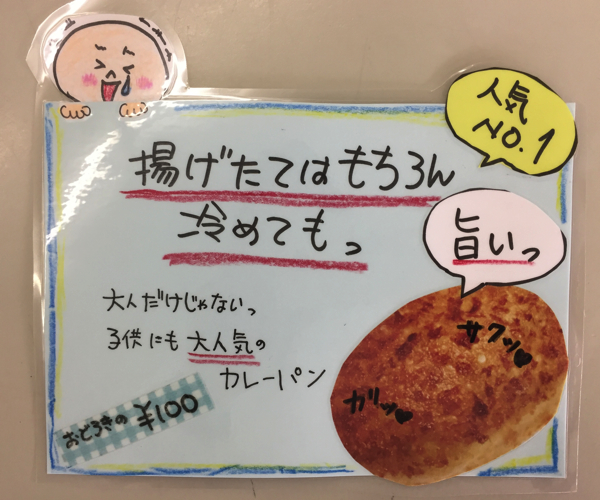 人気
NO.1
揚げたてはもちろん
冷めてもっ
旨いっ
大人だけじゃないっ
子供にも大人気の
カレーパン
サクッ♥
ガリッ♥
おどろきの ¥100